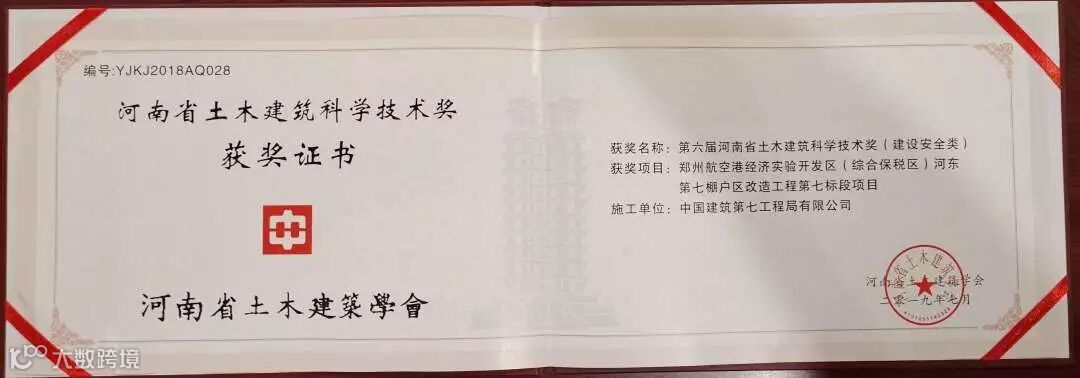 编号:YJKJ2018AQ028
河南省土木建筑科学技术奖
获奖证书
河南省土木建築學會
获奖名称：第六届河南省土木建筑科学技术奖（建设安全类）
获奖项目：郑州航空港经济实验开发区（综合保税区）河东
第七棚户区改造工程第七标段项目
施工单位：中国建筑第七工程局有限公司
河南省土木建筑学会
二零一九年七月
大数跨境